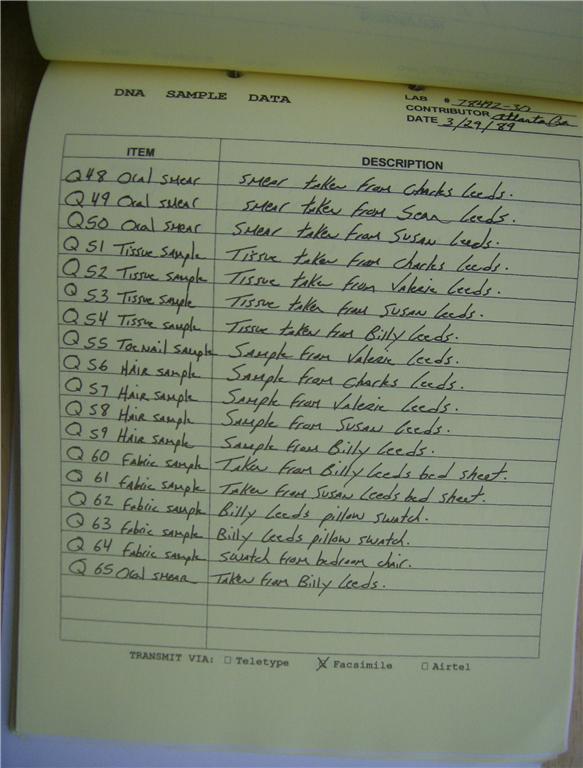 DNA SAMPLE DATA
LAB # 78492-30
CONTRIBUTOR Atlanta Ga
DATE 3/29/89
ITEM DESCRIPTION
Q48 Oral smear smear taken from Charles Leeds.
Q49 Oral smear smear taken from Sean Leeds.
Q50 Oral smear smear taken from Susan Leeds.
Q 51 Tissue sample Tissue taken from Charles Leeds.
Q 52 Tissue sample Tissue taken from Valerie Leeds.
Q 53 Tissue sample Tissue taken from Susan Leeds.
Q 54 Tissue sample Tissue taken from Billy Leeds.
Q 55 Toenail sample Sample from Valerie Leeds.
Q 56 Hair sample Sample from Charles Leeds.
Q 57 Hair sample Sample from Valerie Leeds.
Q 58 Hair sample Sample from Susan Leeds.
Q 59 Hair sample Sample from Billy Leeds.
Q 60 Fabric sample Taken from Billy Leeds bed sheet.
Q 61 Fabric sample Taken from Susan Leeds bed sheet.
Q 62 Fabric sample Billy Leeds pillow swatch.
Q 63 Fabric sample Billy Leeds pillow swatch.
Q 64 Fabric sample Swatch from bedroom chair.
Q 65 Oral smear Taken from Billy Leeds.
TRANSMIT VIA: Teletype Facsimile Airtel